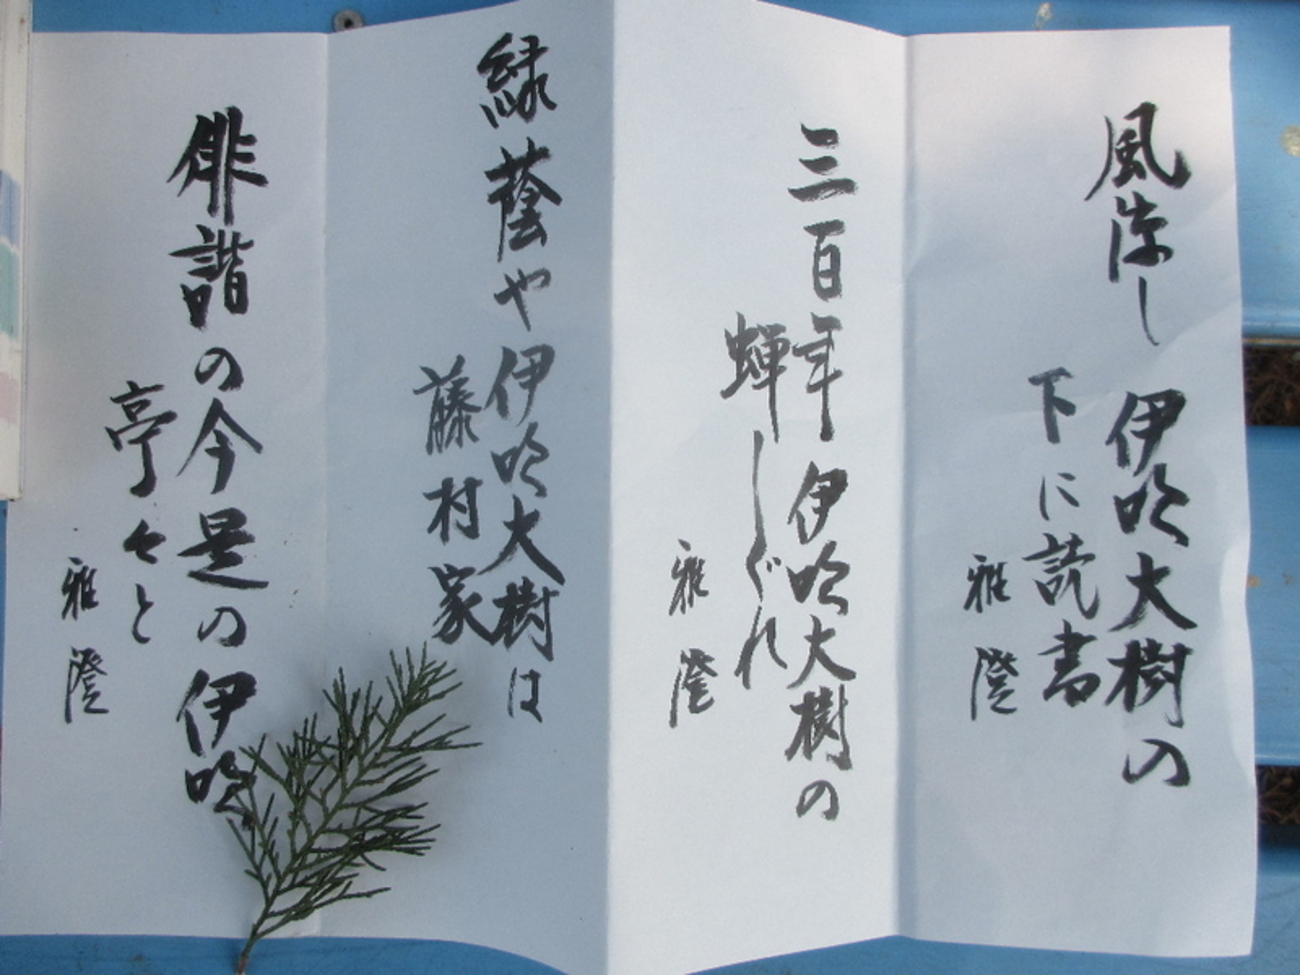 風涼し伊吹大樹の
下に読書
雅澄
三百年伊吹大樹の
蝉しぐれ
雅澄
緑蔭や伊吹大樹は
藤村家
俳諧の今是の伊吹
亭々と
雅澄